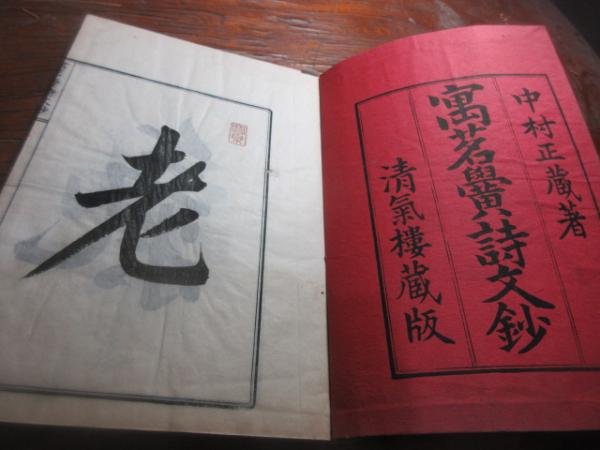 中村正蔵著
寓茗黌詩文鈔
清氣樓蔵版
老